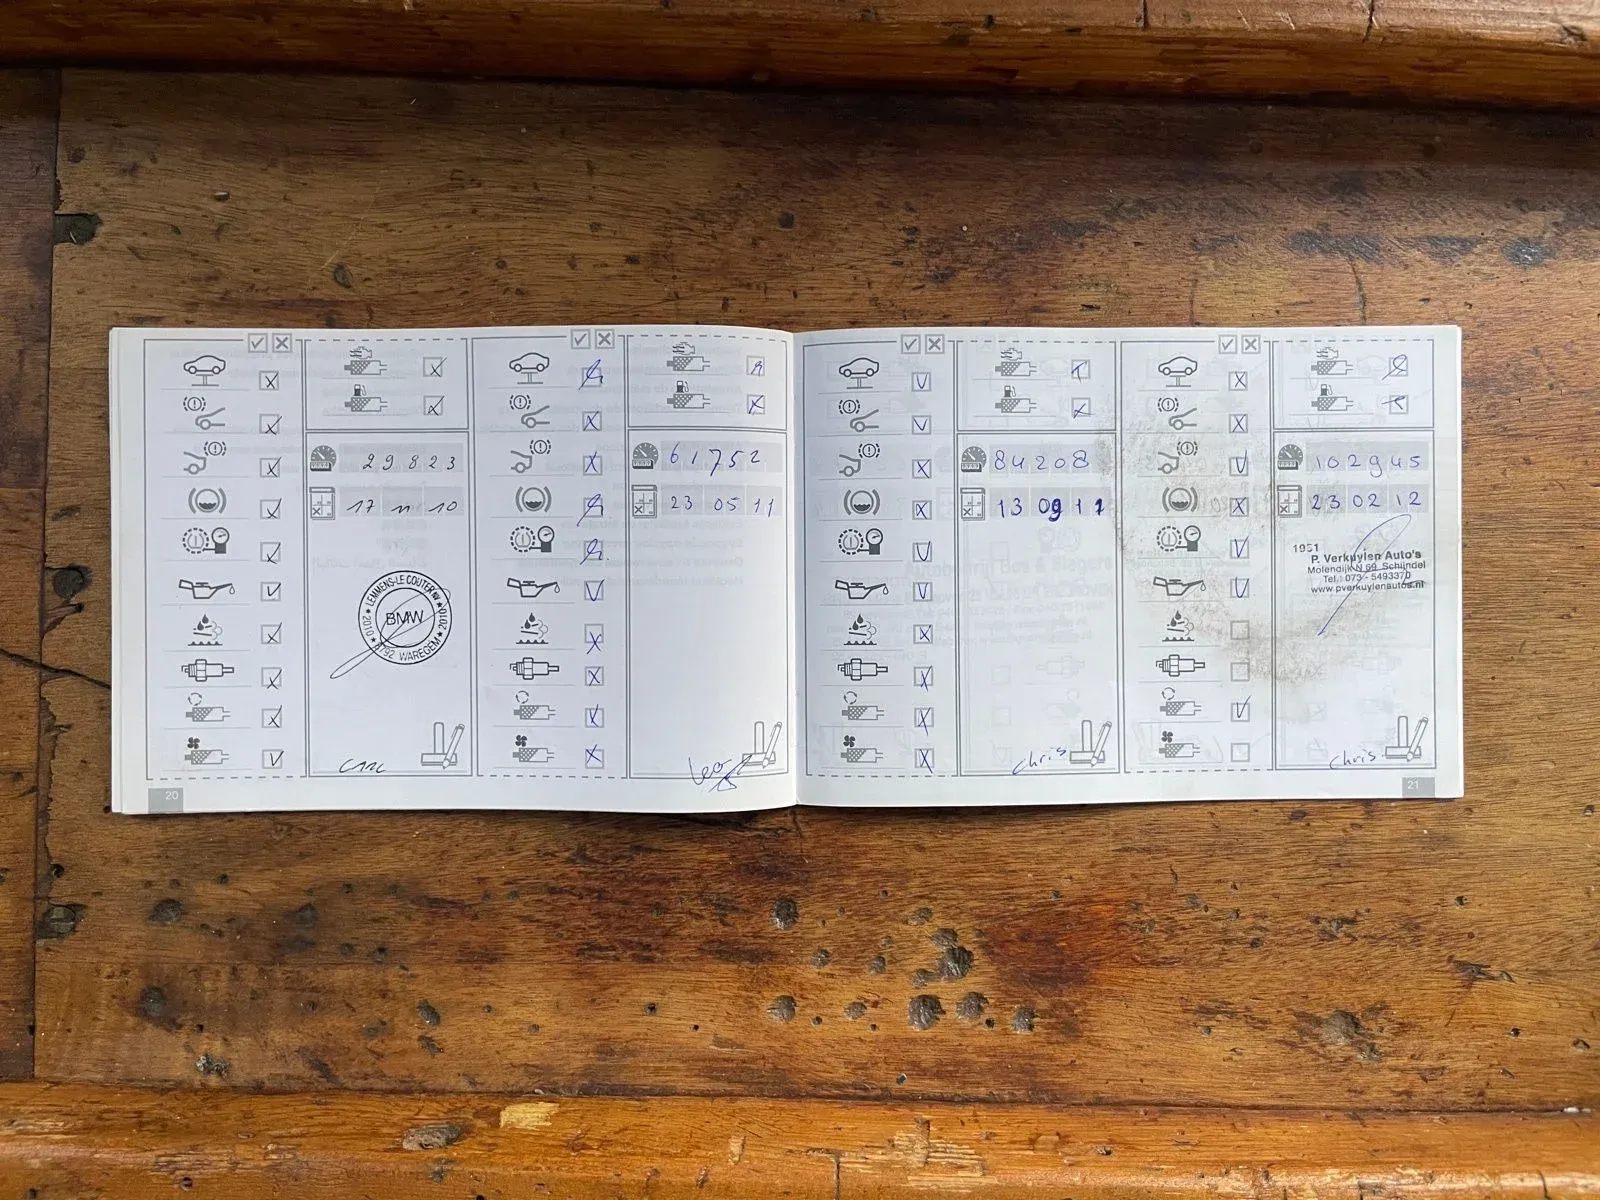 29823
17 11 10
LEMMENS-LE COUTER NV
★ 2010 ★ 8792 WAREGEM ★ 2010 ★
BMW
CARL
20
61752
23 05 11
Leo
84208
13 09 11
chris
102945
23 02 12
1951
P. Verkuylen Auto's
Molendijk N 69 Schijndel
Tel.: 073 - 5493370
www.pverkuylenautos.nl
chris
21